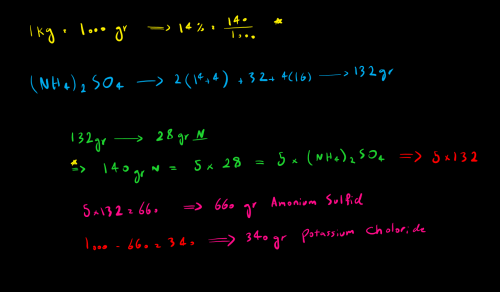 1kg = 1000 gr → 14% = 140/1000 *
(NH4)2SO4 → 2(14+4) + 32 + 4(16) → 132 gr
132gr → 28 gr N
* ⇒ 140 gr N = 5 × 28 = 5 × (NH4)2SO4 ⇒ 5×132
5×132 = 660 ⇒ 660 gr Amonium Sulfid
1000 - 660 = 340 ⇒ 340 gr Potassium Choloride